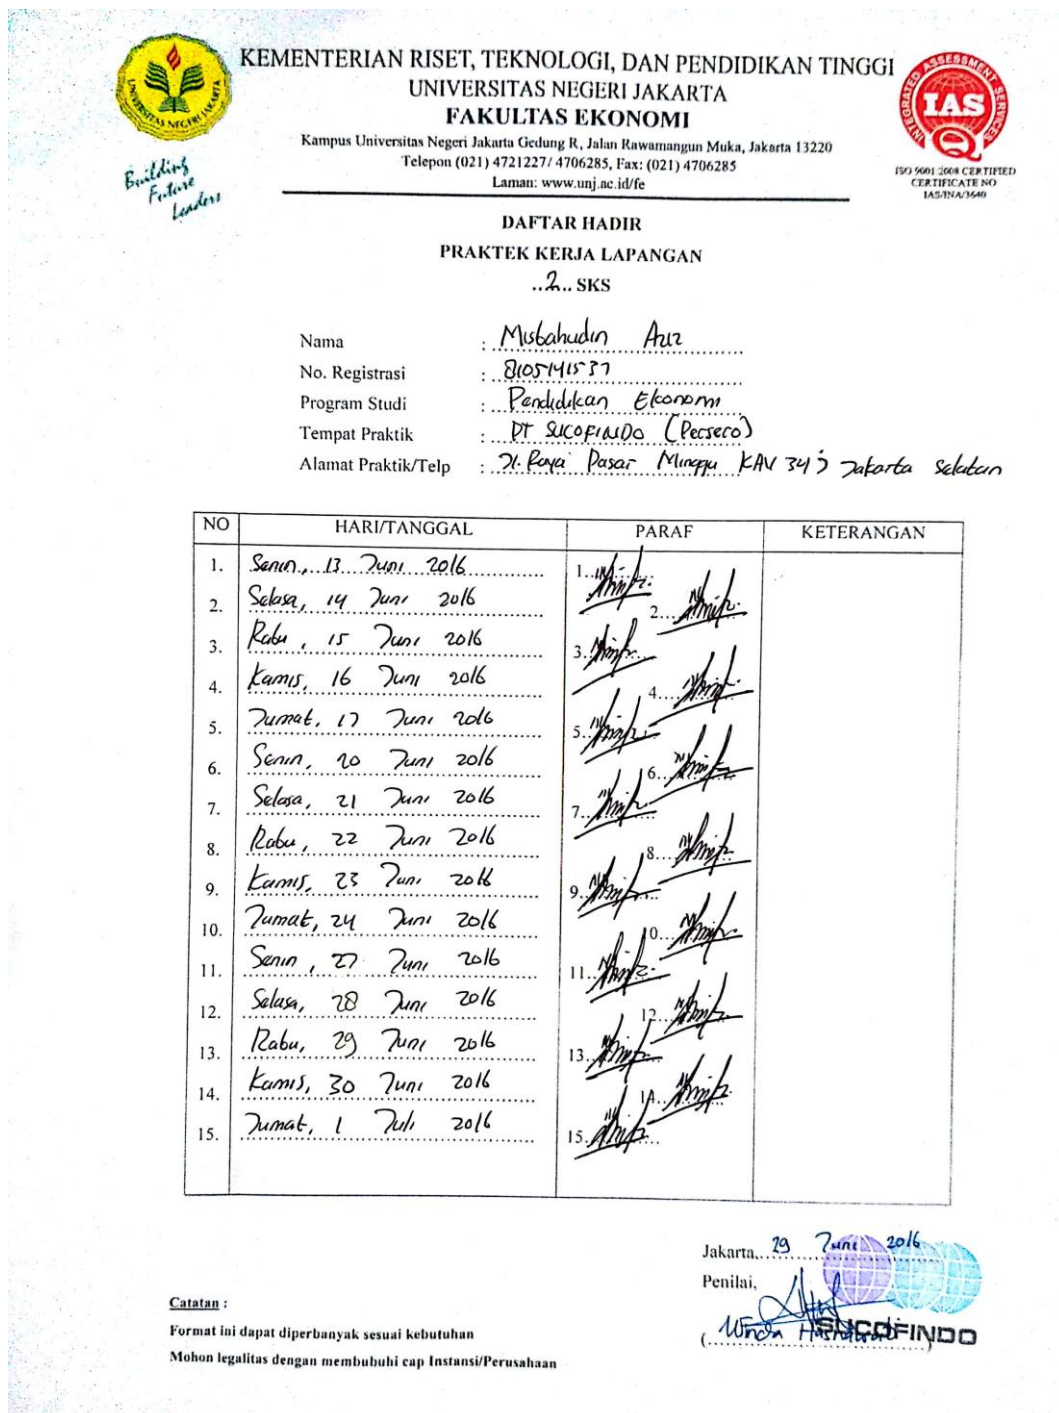 KEMENTERIAN RISET, TEKNOLOGI, DAN PENDIDIKAN TINGGI
UNIVERSITAS NEGERI JAKARTA
FAKULTAS EKONOMI
Kampus Universitas Negeri Jakarta Gedung R, Jalan Rawamangun Muka, Jakarta 13220
Telepon (021) 4721227/ 4706285, Fax: (021) 4706285
Laman: www.unj.ac.id/fe
UNIVERSITAS NEGERI JAKARTA
Building
Future
Leaders
INTEGRATED ASSESSMENT SERVICES
IAS
ISO 9001:2008 CERTIFIED
CERTIFICATE NO
IAS/INA/3640
DAFTAR HADIR
PRAKTEK KERJA LAPANGAN
..2.. SKS
Nama : Misbahudin Aziz
No. Registrasi : 8105141537
Program Studi : Pendidikan Ekonomi
Tempat Praktik : PT SUCOFINDO (Persero)
Alamat Praktik/Telp : Jl. Raya Pasar Minggu KAV 34, Jakarta Selatan
NO HARI/TANGGAL PARAF KETERANGAN
1. Senin, 13 Juni 2016 1.
2. Selasa, 14 Juni 2016 2.
3. Rabu, 15 Juni 2016 3.
4. Kamis, 16 Juni 2016 4.
5. Jumat, 17 Juni 2016 5.
6. Senin, 20 Juni 2016 6.
7. Selasa, 21 Juni 2016 7.
8. Rabu, 22 Juni 2016 8.
9. Kamis, 23 Juni 2016 9.
10. Jumat, 24 Juni 2016 10.
11. Senin, 27 Juni 2016 11.
12. Selasa, 28 Juni 2016 12.
13. Rabu, 29 Juni 2016 13.
14. Kamis, 30 Juni 2016 14.
15. Jumat, 1 Juli 2016 15.
Jakarta, 29 Juni 2016
Penilai,
SUCOFINDO
(Winda )
Catatan :
Format ini dapat diperbanyak sesuai kebutuhan
Mohon legalitas dengan membubuhi cap Instansi/Perusahaan